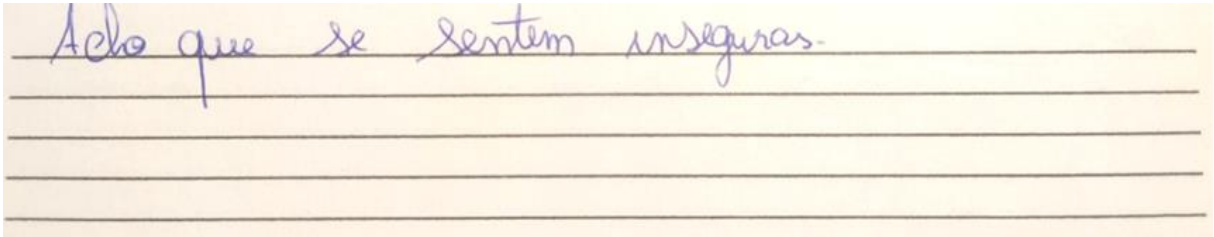 Acho que se sentem inseguras.